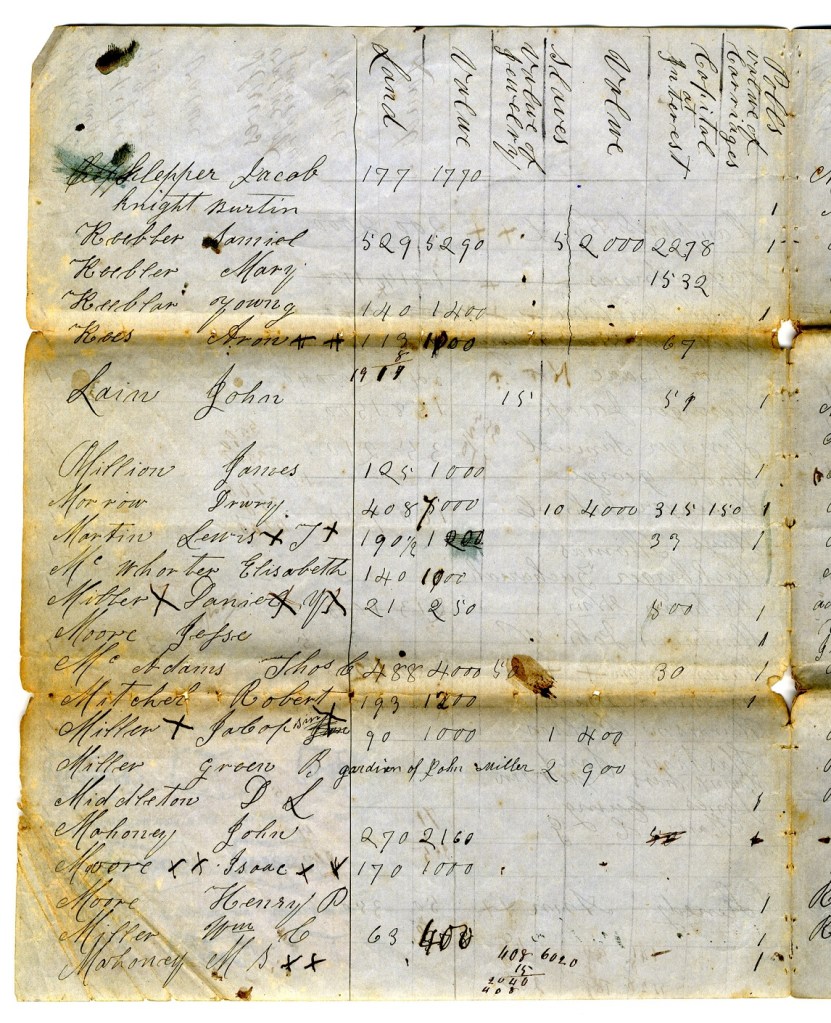 Land Value Value of Jewelry Slaves Value Capital at Interest value of Carriages Polls
Klepper Jacob 177 1770
Knight Burtin 1
Keebler Samiel 529 5290 5 2000 2278 1
Keebler Mary 1532
Keeblar Young 140 1400 1
Kees Aron x x 113 1000 67
8
19 17
Lain John 15 51 1
Million James 125 1000 1
Morrow Drury 408 7000 10 4000 315 150 1
Martin Lewis x J x 190 1/2 1200 33 1
Mc Whorter Elisabeth 140 1000
Miller x Daniel x 213 250 500 1
Moore Jesse 1
Mc Adams Thos C 488 4000 50 30 1
Mitchel Robert 193 1200 1
Miller x Jacop 90 1000 1 400
Miller Green B gardien of John Miller 2 900
Middleton D L 1
Mahoney John 270 2160
Moore x x Isaac x x 170 1000
Moore Henry P 1
Miller Wm C 63 400 1
Mahoney M S x x 1
408 6020
15
2040
408